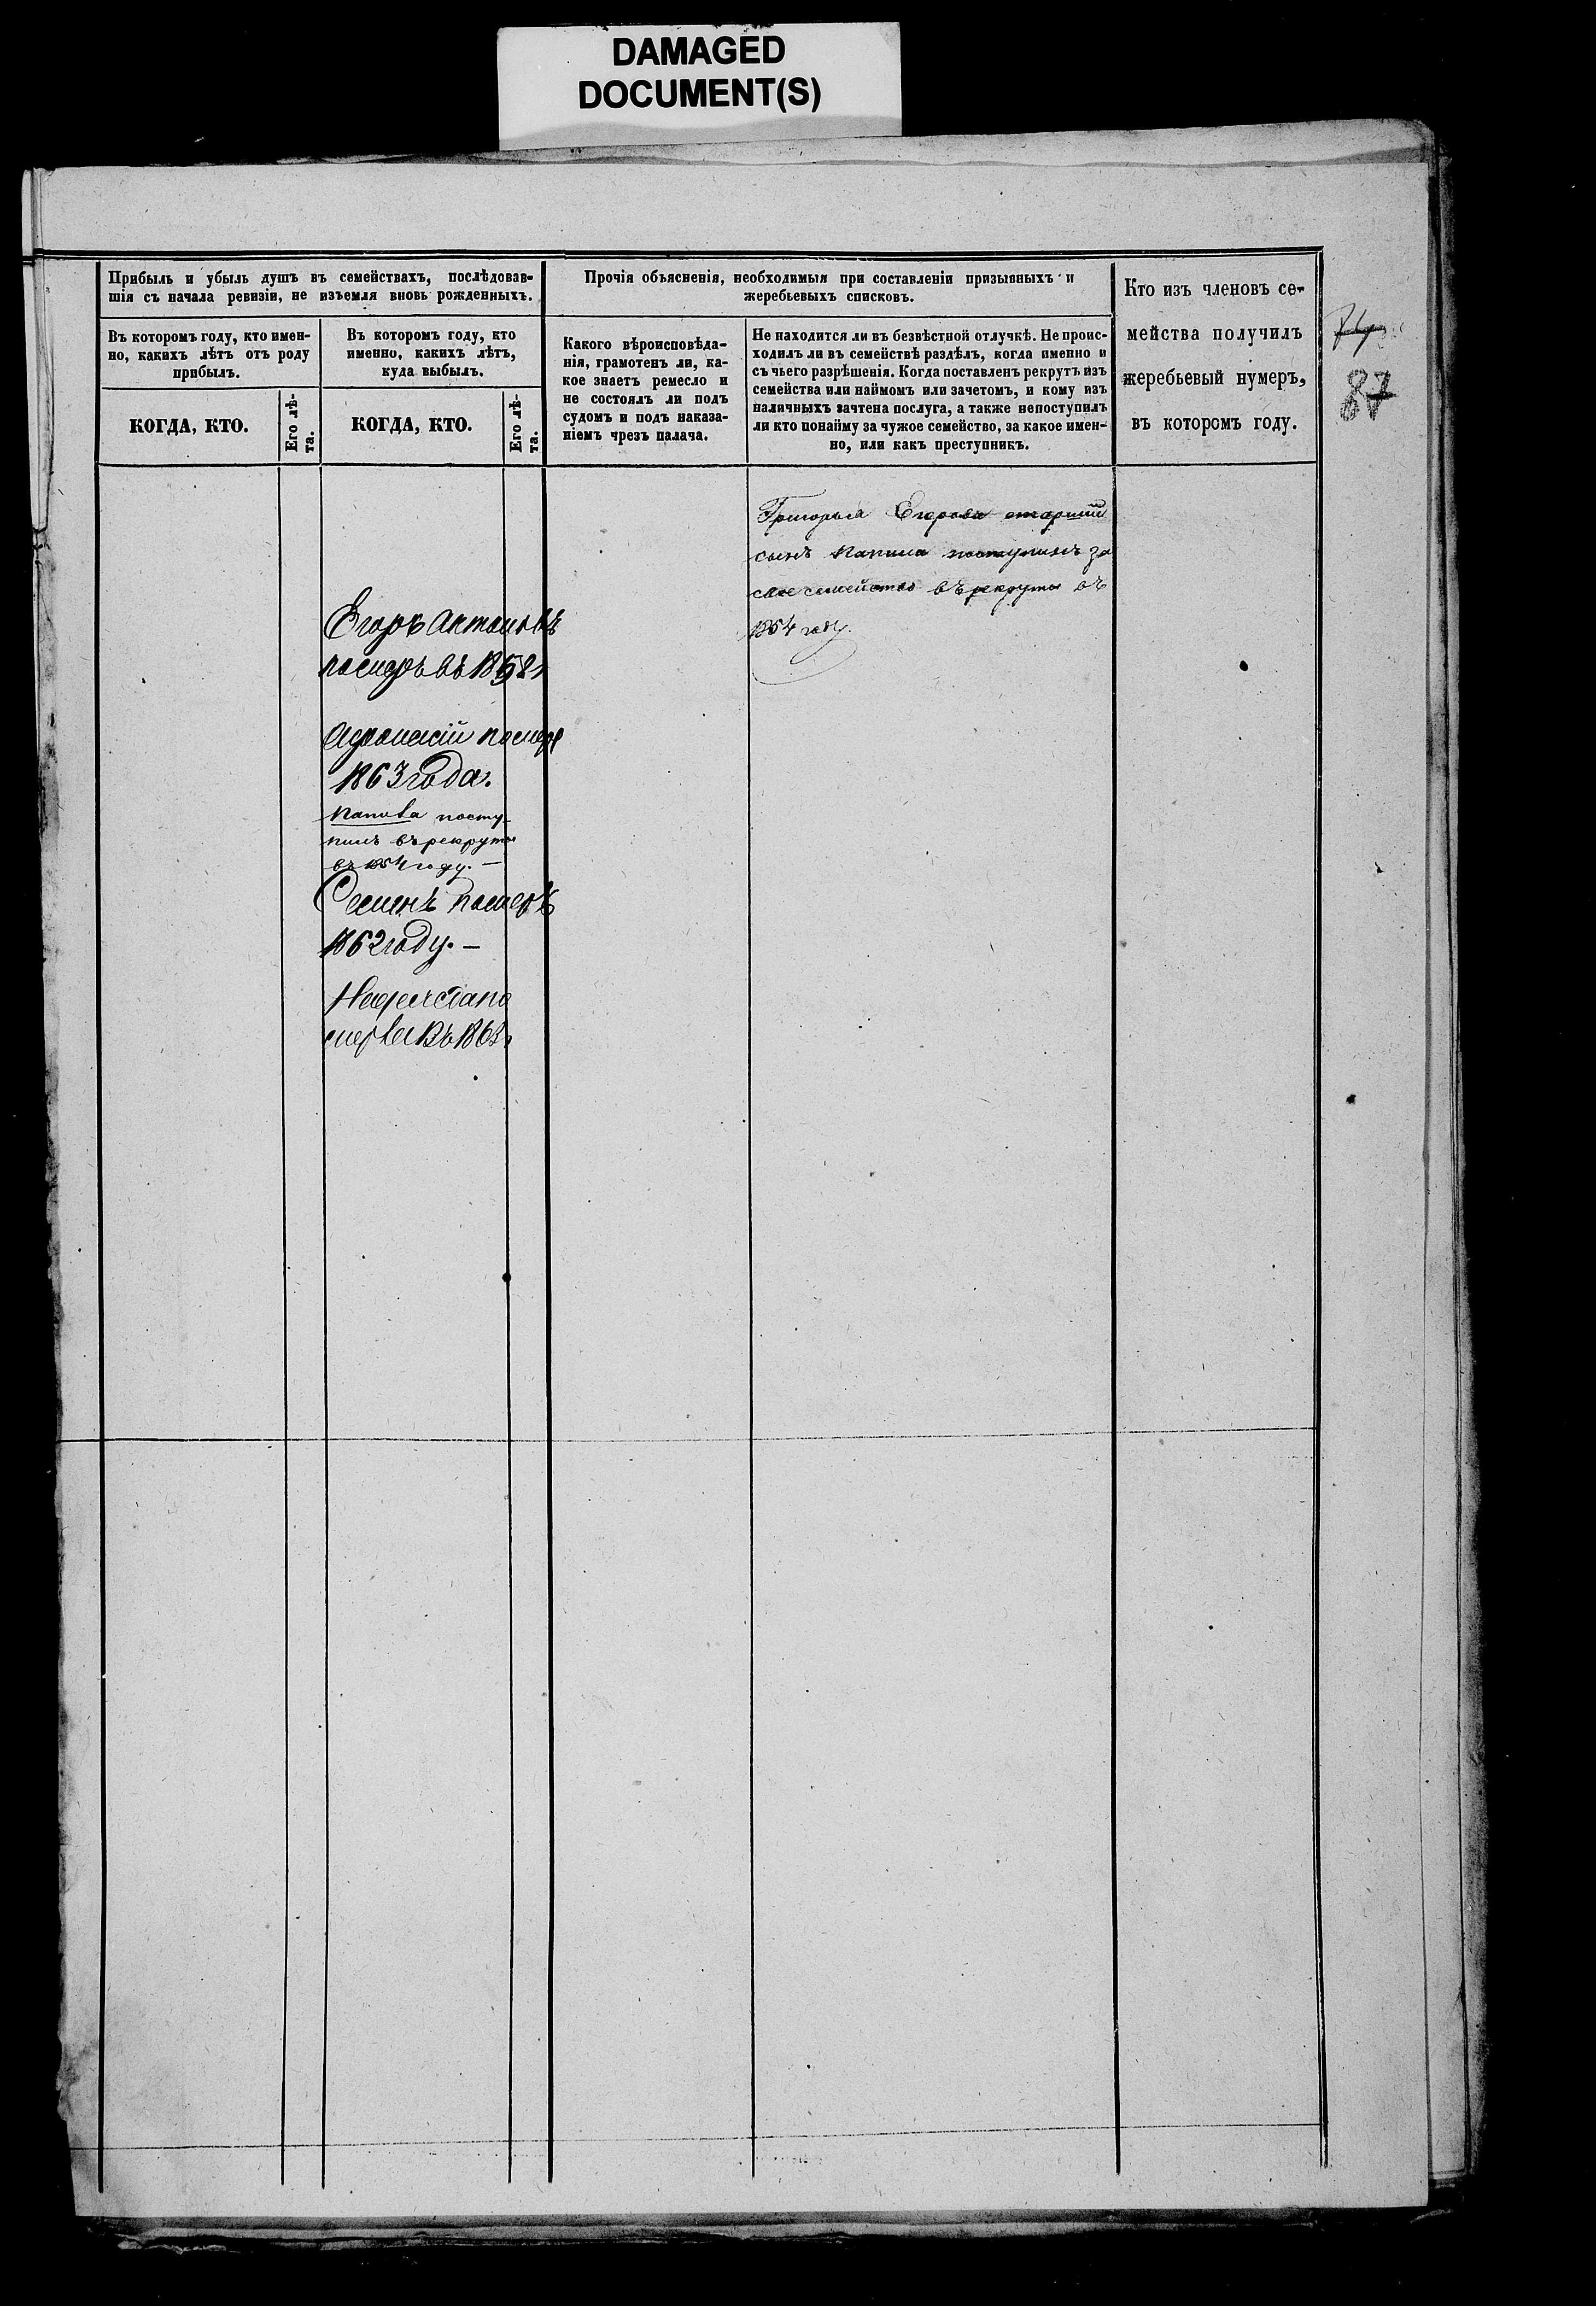 DAMAGED
DOCUMENT(S)
Прибыль и убыль душъ въ семействахъ, послѣдовав-
шія съ начала ревизіи, не изъемля вновь рожденныхъ.
Въ которомъ году, кто имен-
но, какихъ лѣтъ отъ роду
прибылъ.
КОГДА, КТО.
Его лѣ-
та.
Въ которомъ году, кто
именно, какихъ лѣтъ,
куда выбылъ.
КОГДА, КТО.
Его лѣ-
та.
Прочія объясненія, необходимыя при составленіи призывныхъ и
жеребьевыхъ списковъ.
Какого вѣроисповѣда-
нія, грамотенъ ли, ка-
кое знаетъ ремесло и
не состоялъ ли подъ
судомъ и подъ наказа-
ніемъ чрезъ палача.
Не находится ли въ безвѣстной отлучкѣ. Не проис-
ходилъ ли въ семействѣ раздѣлъ, когда именно и
съ чьего разрѣшенія. Когда поставленъ рекрутъ изъ
семейства или наймомъ или зачетомъ, и кому изъ
наличныхъ зачтена послуга, а также непоступилъ
ли кто понайму за чужое семейство, за какое имен-
но, или какъ преступникъ.
Кто изъ членовъ се-
мейства получилъ
жеребьевый нумеръ,
въ которомъ году.
74
87
Егоръ Антоновъ
померъ въ 1858
помер
1863 года.
посту-
пилъ въ рекруты
въ 1854 году. —
Семенъ померъ
1862 году. —
въ 186
Григорья Егорова старшій
сынъ поступилъ за
свое семейство въ рекруты въ
1854 году.